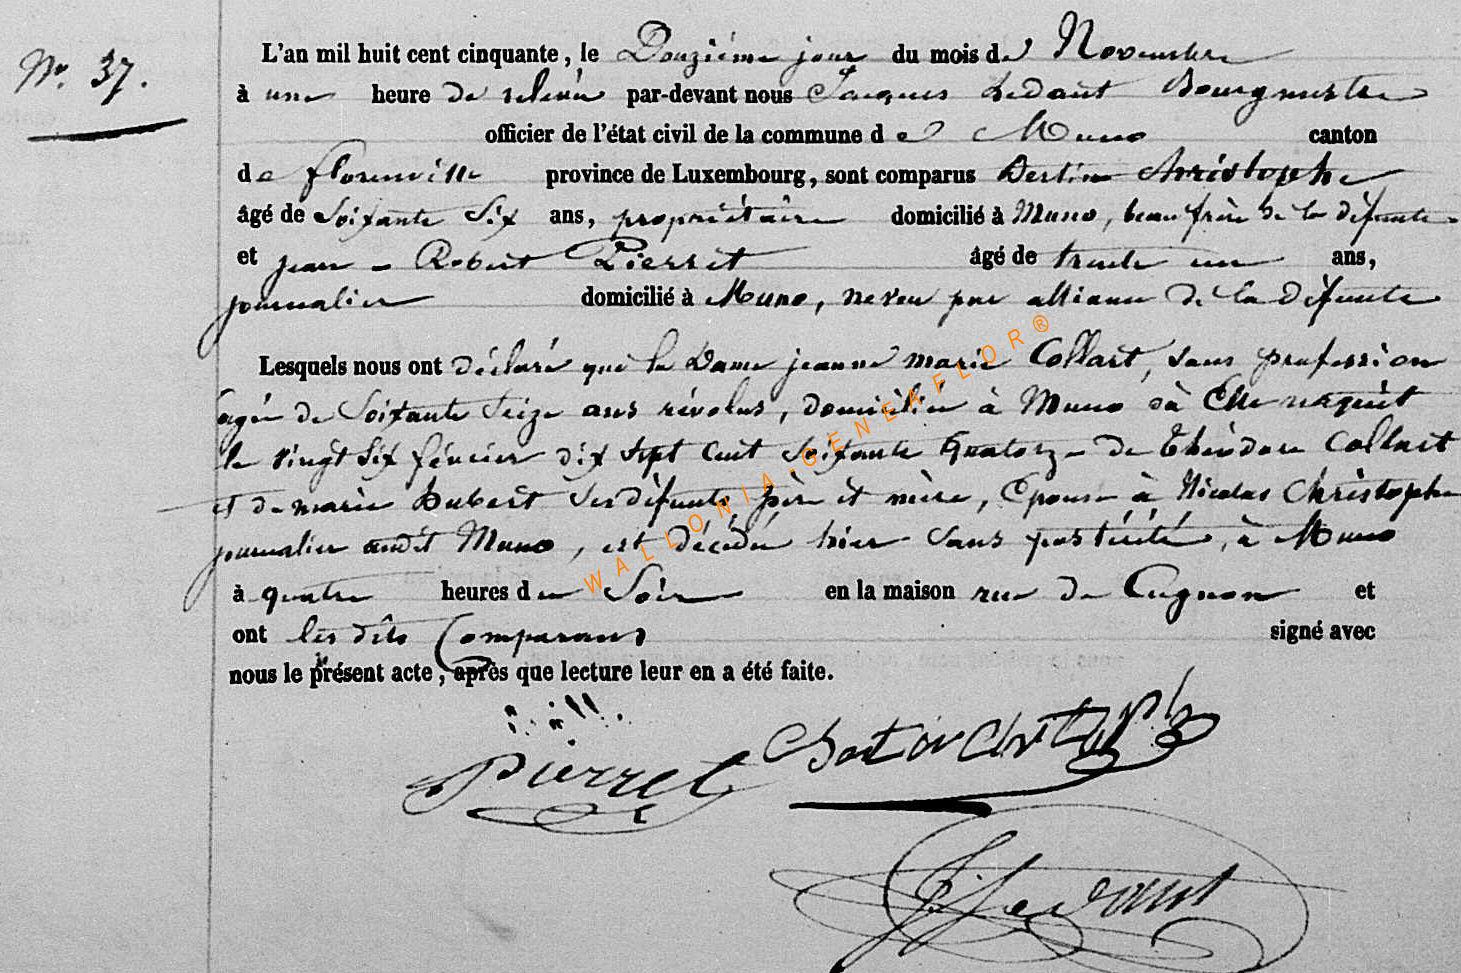 No. 37.
L'an mil huit cent cinquante, le Douzième jour du mois de Novembre
à une heure de relevée par-devant nous Jacques Ledant Bourgmestre
officier de l'état civil de la commune de Muno canton
de florenville province de Luxembourg, sont comparus Bertin Christophe
âgé de Soixante Six ans, propriétaire domicilié à Muno, beau frère de la défunte
et jean - Robert Pierret âgé de trente un ans,
journalier domicilié à Muno, neveu par alliance de la défunte
Lesquels nous ont déclaré que la Dame jeanne marie Collart, sans profession
agée de Soixante Seize ans révolus, domiciliée à Muno où Elle naquit
le vingt six février dix sept cent soixante Quatorze de Théodore Collart
et de marie Hubert ses défunts père et mère, Epouse à Nicolas Christophe
journalier audit Muno, est décédée hier sans postérité, à Muno
à quatre heures du Soir en la maison rue de Cugnon et
ont les dits Comparans signé avec
nous le présent acte, après que lecture leur en a été faite.
WALLONIA-GENEAFLOR®
Pierret
J Ledant